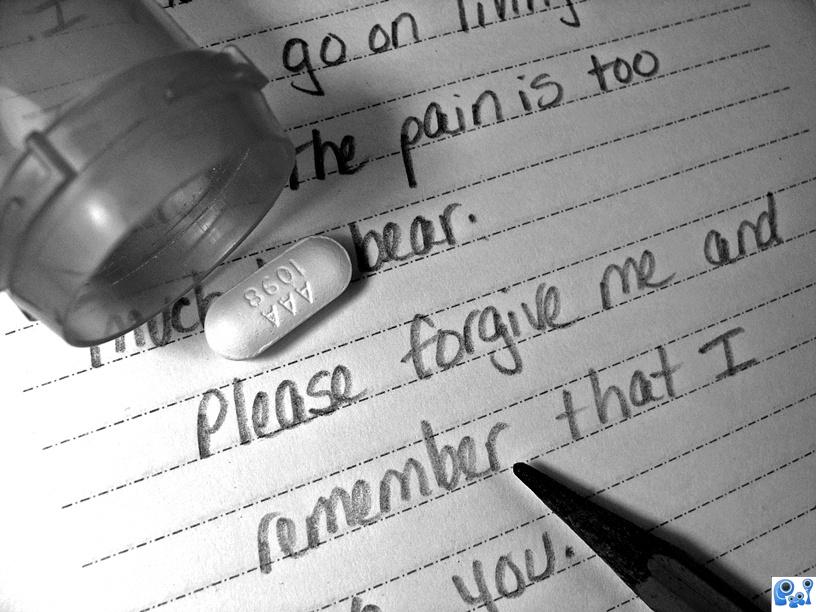 go on living
The pain is too
much bear.
Please forgive me and
remember that I
you.
AAA
1098